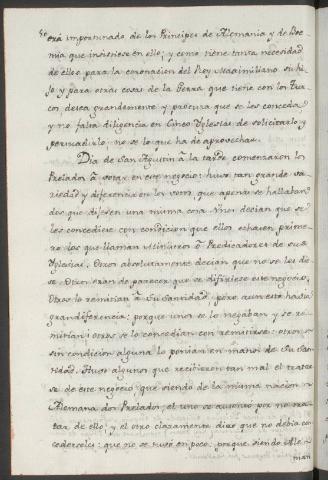 era importunado de los Principes de Alemania y de Boe-
mia que insistiese en ello; y como tiene tanta necesidad
de ellos para la coronacion del Rey Maximiliano su hi-
jo y para otras cosas de la Gerra que tiene con los Tur-
cos, desea grandemente y procura que se les conceda,
y no falta diligencia en Cinco Yglesias de solicitarlo y
persuadirlo; no se lo que ha de aprovechar.
Dia de San Agustin á la tarde comenzaron los
Prelados á votar en este negocio: huvo tan grande va-
riedad y diferencia en los votos, que apenas se hallaban
dos que dijesen una misma cosa. Unos decian que se
les concediese con condicion que ellos echasen prime-
ro los que llaman Ministros ó Predicadores de sus
Yglesias. Otros absolutamente decian que no se les die-
se. Otros eran de parecer que se difiriese este negocio.
Otros lo remitian á Su Santidad, pero aun esto havia
gran diferencia; porque unos se lo negaban y se re-
mitian; otros se lo concedian con remitirse: otros
sin condicion alguna lo ponian en manos de Su San-
tidad. Huvo algunos que recibieron tan mal el tratar-
se de este negocio, que siendo de la misma nacion
Alemana dos Prelados, el uno se ausentó por no tra-
tar de ello; y el otro claramente dixo que no debia con-
cederseles; que no se tuvo en poco, porque siendo Ale-
man